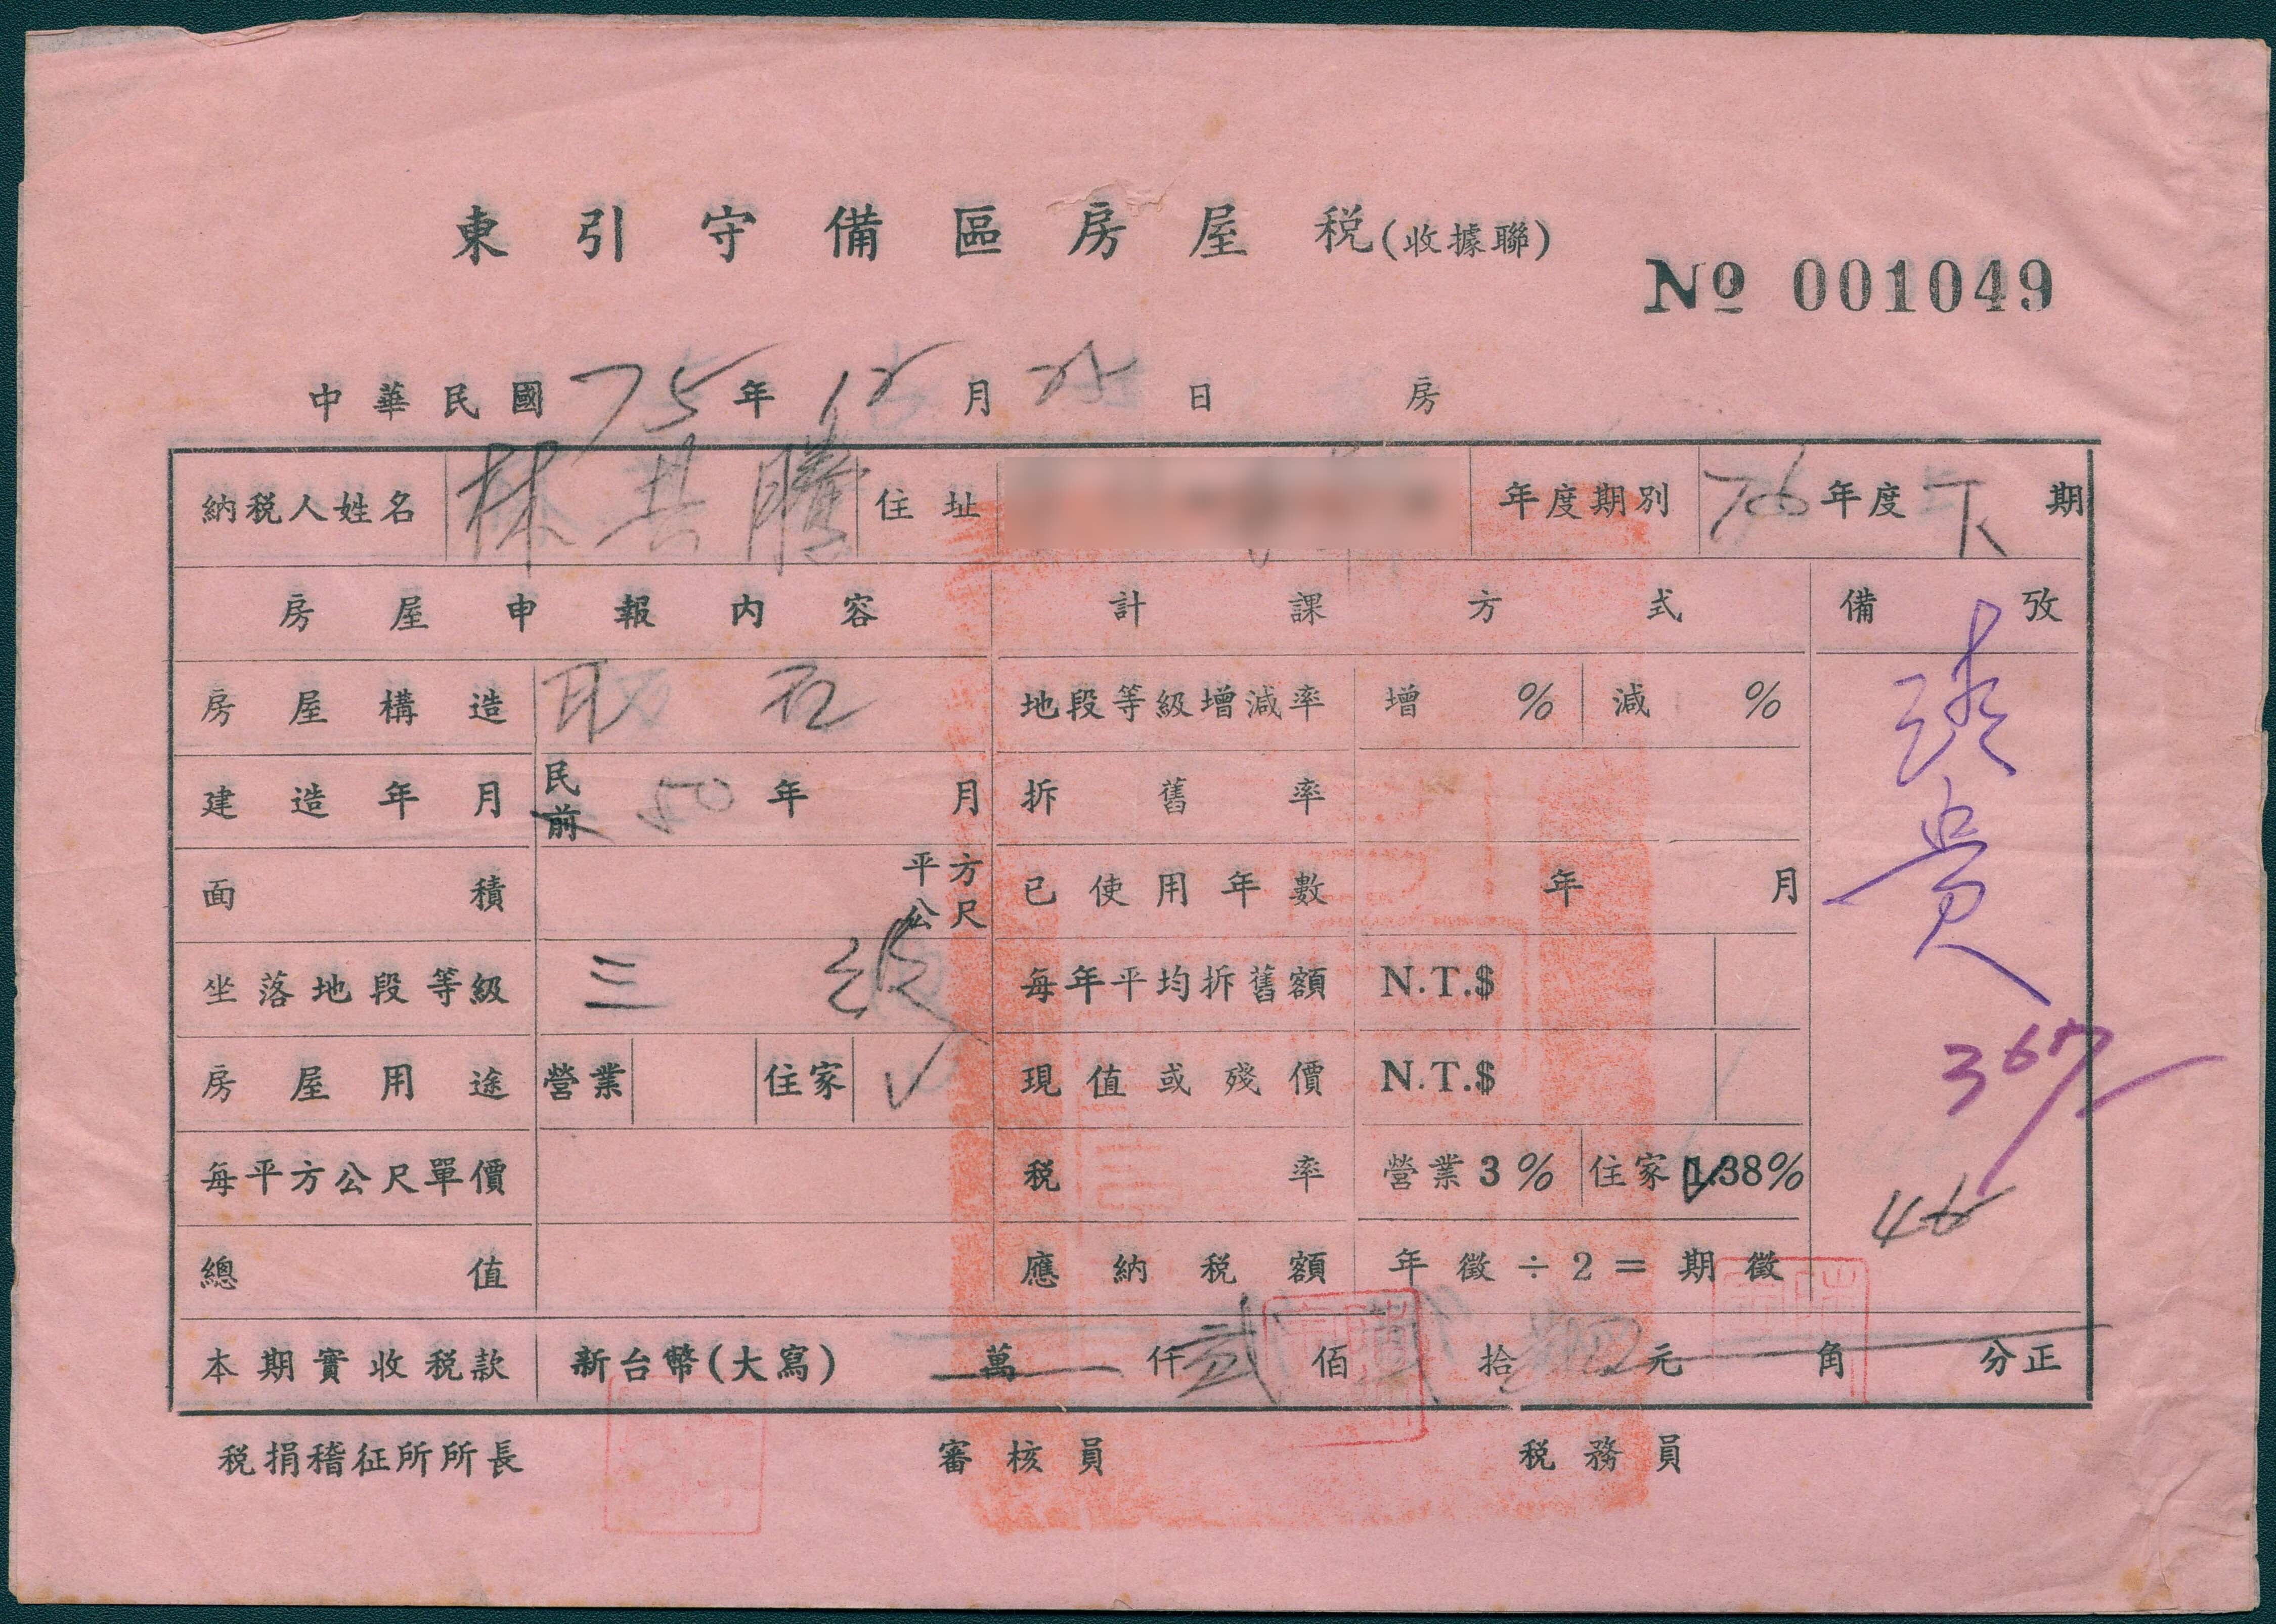 東引守備區房屋稅(收據聯)
№ 001049
中華民國75年12月25日 房
納稅人姓名 林其騰 住址 年度期別 76年度下期
房屋申報內容 計課方式 備攷
房屋構造 石 地段等級增減率 增 % 減 %
建造年月 民前 50年 月 拆舊率
面積 平方公尺 已使用年數 年 月
坐落地段等級 三級 每年平均拆舊額 N.T.$
房屋用途 營業 住家 ✓ 現值或殘價 N.T.$
367
每平方公尺單價 稅率 營業3% 住家1.38%
46
總值 應納稅額 年徵÷2=期徵
本期實收稅款 新台幣(大寫) 萬 仟 貳佰 拾 元 角 分正
稅捐稽征所所長 審核員 稅務員